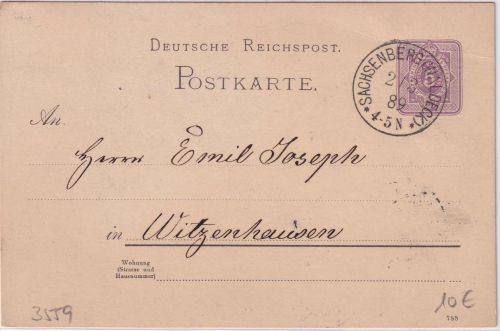 DEUTSCHE REICHSPOST.
POSTKARTE.
SACHSENBERG
89
*4-5N*
5
An
Herrn Emil Joseph
in Witzenhausen
Wohnung
(Strasse und
Hausnummer)
3559
10€
788